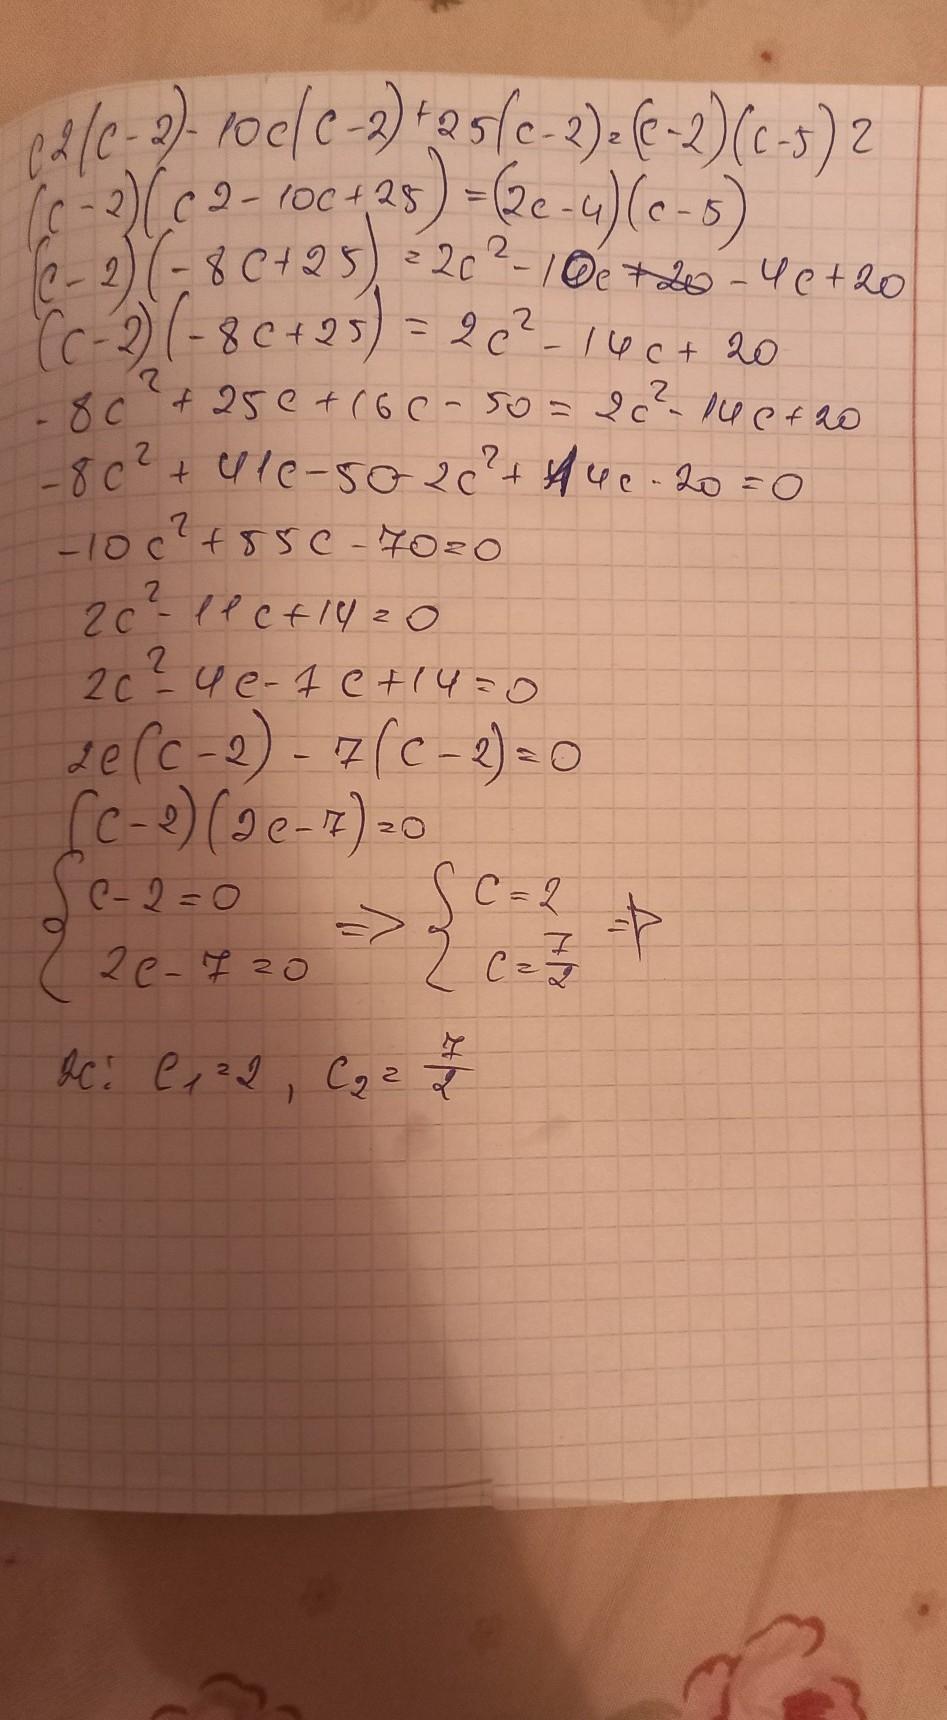 c2(c-2)-10c(c-2)+25(c-2)=(c-2)(c-5)2
(c-2)(c2-10c+25)=(2c-4)(c-5)
(c-2)(-8c+25)=2c²-10c+20-4c+20
(c-2)(-8c+25)=2c²-14c+20
-8c²+25c+16c-50=2c²-14c+20
-8c²+41c-50-2c²+14c-20=0
-10c²+55c-70=0
2c²-11c+14=0
2c²-4c-7c+14=0
2c(c-2)-7(c-2)=0
(c-2)(2c-7)=0
{c-2=0 => {c=2 =>
2c-7=0 c=7/2
c₁=2, c₂=7/2